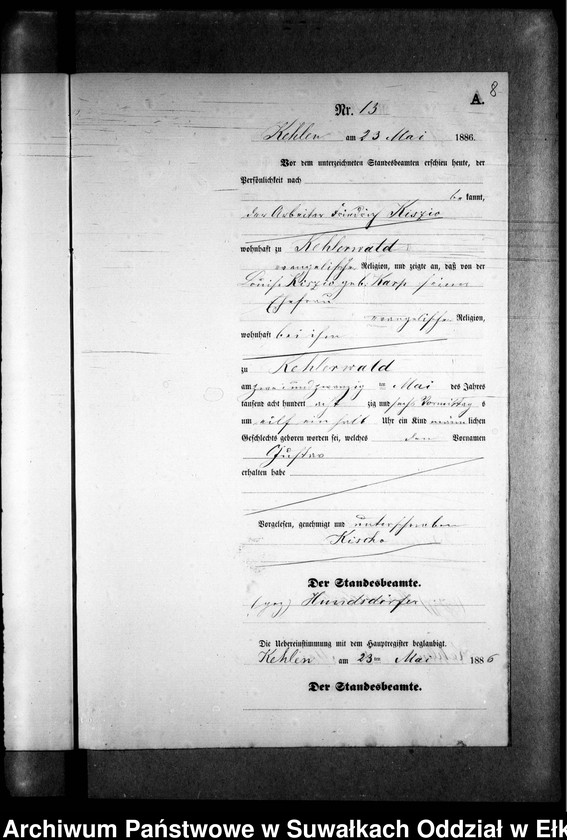 8
A.
Nr. 13
Kehlen am 23 Mai 1886.
Vor dem unterzeichneten Standesbeamten erschien heute, der
Persönlichkeit nach
be kannt,
der Arbeiter Friedrich Kiszio
wohnhaft zu Kehlerwald
evangelischer Religion, und zeigte an, daß von der
Louise Kiszio geb. Karp seiner
Ehefrau
evangelischer Religion,
wohnhaft bei ihm
zu Kehlerwald
am zwei und zwanzig ten Mai des Jahres
tausend acht hundert acht zig und sechs Vormittag s
um eilf ein halb Uhr ein Kind männ lichen
Geschlechts geboren worden sei, welches den Vornamen
Gustav
erhalten habe
Vorgelesen, genehmigt und unterschrieben
Kischo
Der Standesbeamte.
(gez) Hundsdörfer
Die Uebereinstimmung mit dem Hauptregister beglaubigt.
Kehlen am 23ten Mai 1886
Der Standesbeamte.
Archiwum Państwowe w Suwałkach Oddział w Ełk